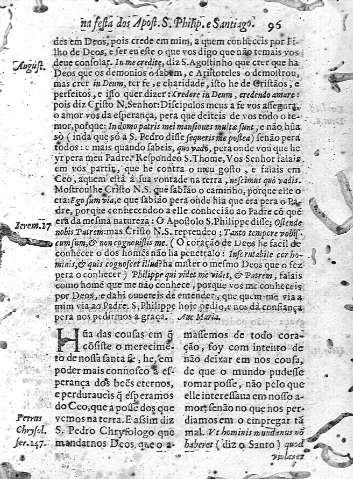 na festa dos Apost. S. Philip. e Santiago. 96
des em Deos, pois crede em mim, a quem conheceis por Fi-
lho de Deos, e ser eu este o que vos digo que não temais vos
deue consolar. In me credite, diz S. Agostinho que crer que ha
August.
Deos que os demonios o sabem, e Aristoteles o demostrou,
mas crer in Deum, ter fe, e charidade, isto he de Cristãos, e
perfeitos, e isso quer dizer: Credere in Deum, credendo amare:
pois diz Cristo N. Senhor: Discipulos meus a fe vos assegura,
o amor vos da esperança, pera que deiteis de vos todo o te-
mor, porque: In domo patris mei mansiones multæ sunt, e não hũa
só (inda que só a S. Pedro disse sequeris me postea) senão pera
todos: e mais quando sabeis, quo vado, pera onde vou que he
yr pera meu Padre? Respondeo S. Thome, Vos Senhor falais
em vos partir, que he contra o meu gosto, e falais em
Ceo, aquem està à sua vontade na terra, nescimus quò vadis.
Mostroulhe Cristo N.S. que sabião o caminho, porque elle o
era: Ego sum via, e que sabião pera onde hia que era pera o Pa-
dre, porque conhecendo a elle conhecião ao Padre cõ quē
era da mesma natureza: O Apostolo S. Philippe disse; Ostende
nobis Patrem: mas Cristo N.S. reprendeo: Tanto tempore vobis-
Ierem. 17
cum sum, & non cognouistis me. (O coração de Deos he facil de
conhecer o dos homēs não ha penetralo: Inscrutabile cor ho-
minis, & quis cognoscet illud? ha mister o mesmo Deos que o fez
pera o conhecer) Philippe qui videt me videt, & Patrem, falais
como home que me não conhece, porque vos me conheceis
por Deos, e dahi ouuereis de entender, que quem me via a
mim via ao Padre. S. Philippe hoje pedio, e nos da confiança
pera nos pedirmos a graça. Aue Maria.
Hũa das cousas em q̃
cõsiste o merecimē-
to de nossa santa fe, he, em
poder mais connosco a es-
perança dos beēs eternos,
e perduraueis q̃ esperamos
do Ceo, que a posse dos que
vemos na terra. E assim diz
Petrus
S. Pedro Chrysologo que
Chrysol.
mandarnos Deos, que o a-
ser. 147.
massemos de todo cora-
ção, foy com intento de
não deixar em nos cousa,
de que o mundo pudesse
tomar posse, não pelo que
elle interessaua em nosso a-
mor: senão no que nos per-
diamos em o empregar tã
mal. Vt hominis mundanus nō
haberet (diz o Santo) quod
violaret